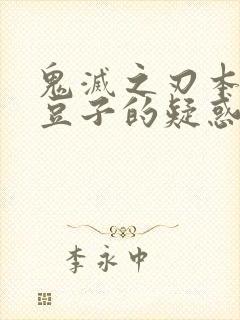 鬼滅之刃本
豆子的疑惑
李永中